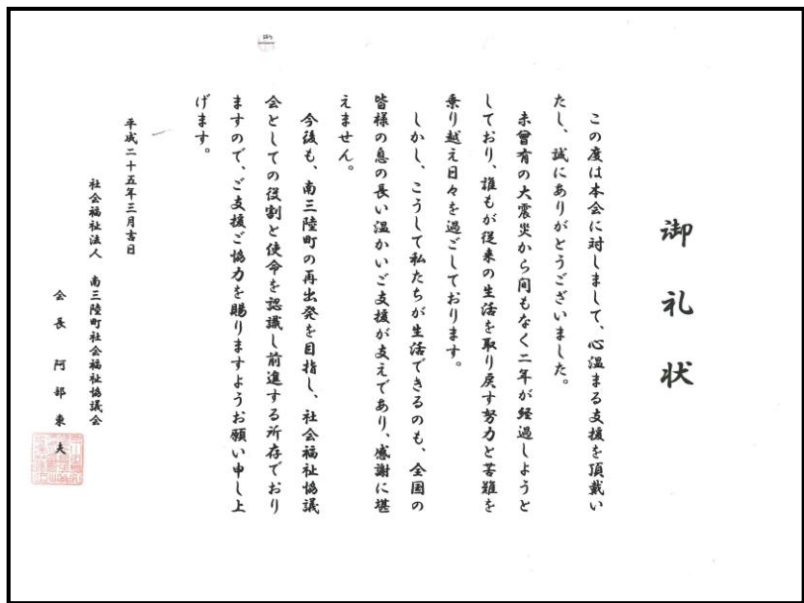 御礼状
この度は本会に対しまして、心温まる支援を頂戴い
たし、誠にありがとうございました。
未曾有の大震災から間もなく二年が経過しようと
しており、誰もが従来の生活を取り戻す努力と苦難を
乗り越え日々を過ごしております。
しかし、こうして私たちが生活できるのも、全国の
皆様の息の長い温かいご支援が支えであり、感謝に堪
えません。
今後も、南三陸町の再出発を目指し、社会福祉協議
会としての役割と使命を認識し前進する所存でおり
ますので、ご支援ご協力を賜りますようお願い申し上
げます。
平成二十五年三月吉日
社会福祉法人 南三陸町社会福祉協議会
会長 阿部東夫